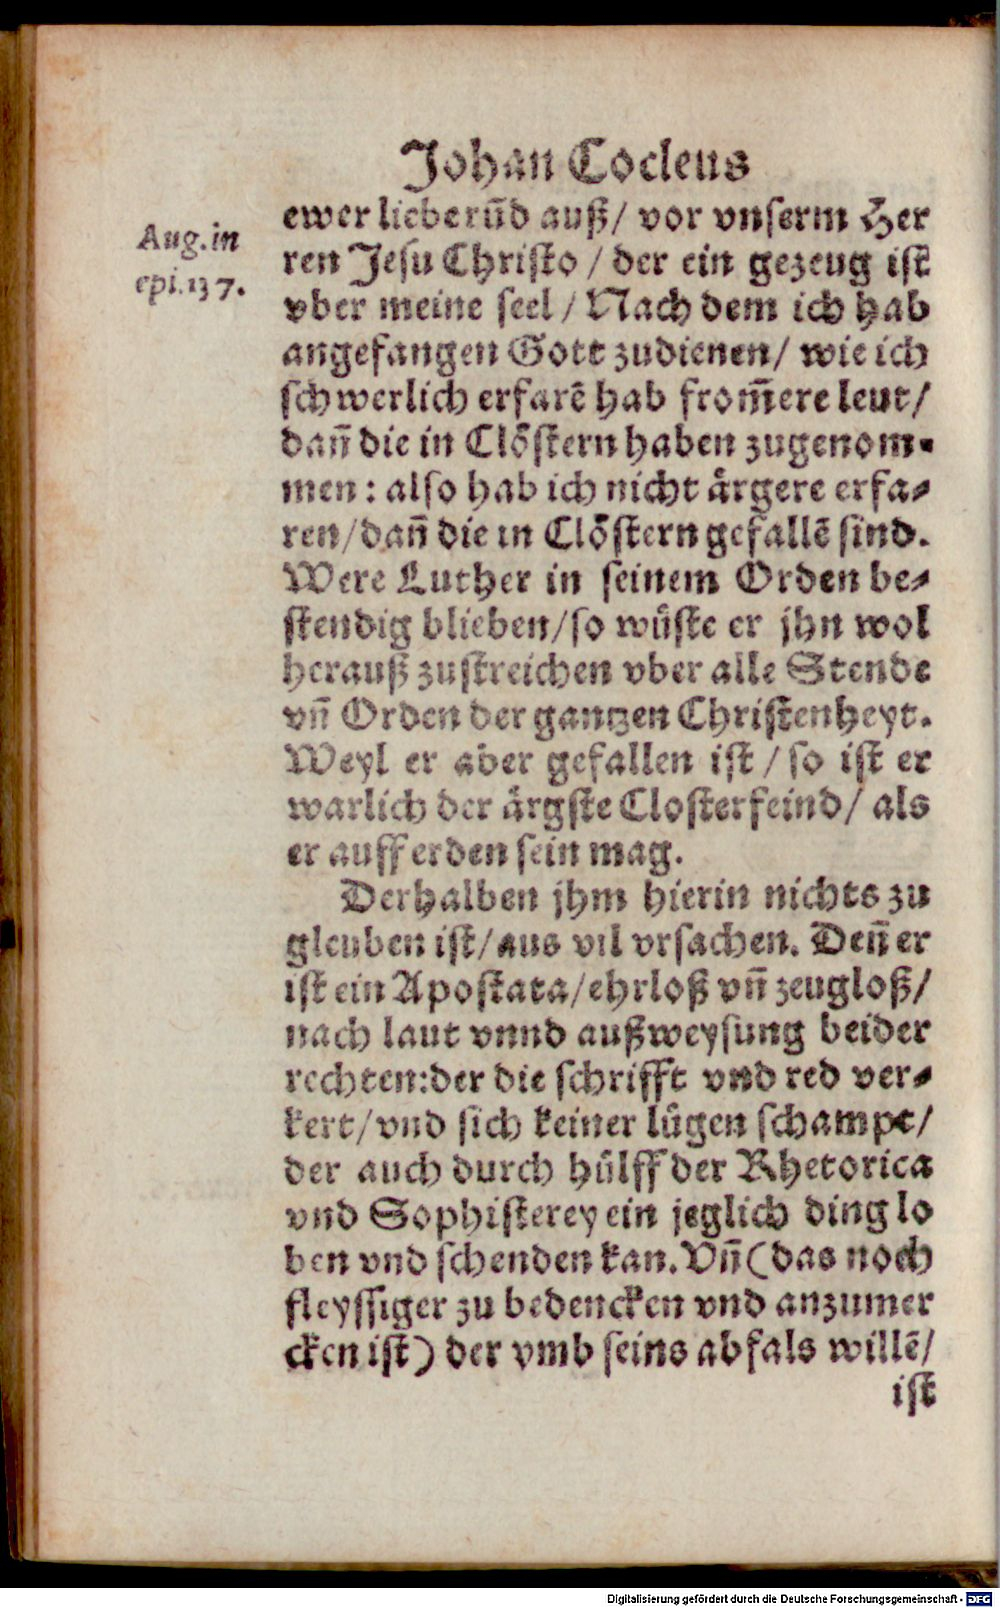 Johan Cocleus
Aug. in
epi. 137.
ewer lieb erūd auß / vor vnserm Her
ren Jesu Christo / der ein gezeug ist
vber meine seel / Nach dem ich hab
angefangen Gott zudienen / wie ich
schwerlich erfarē hab from̄ere leut /
dan̄ die in Clöstern haben zugenom-
men : also hab ich nicht ärgere erfa-
ren / dan̄ die in Clöstern gefallē sind.
Were Luther in seinem Orden be-
stendig blieben / so wüste er jhn wol
herauß zustreichen vber alle Stende
vn̄ Orden der gantzen Christenheyt.
Weyl er aber gefallen ist / so ist er
warlich der ärgste Closterfeind / als
er auff erden sein mag.
Derhalben jhm hierin nichts zu
gleuben ist / aus vil vrsachen. Den̄ er
ist ein Apostata / ehrloß vn̄ zeugloß /
nach laut vnnd außweysung beider
rechten: der die schrifft vnd red ver-
kert / vnd sich keiner lügen schampt /
der auch durch hülff der Rhetorica
vnd Sophisterey ein jeglich ding lo
ben vnd schenden kan. Vn̄ (das noch
fleyssiger zu bedencken vnd anzumer
cken ist) der vmb seins abfals willē /
ist
Digitalisierung gefördert durch die Deutsche Forschungsgemeinschaft - DFG